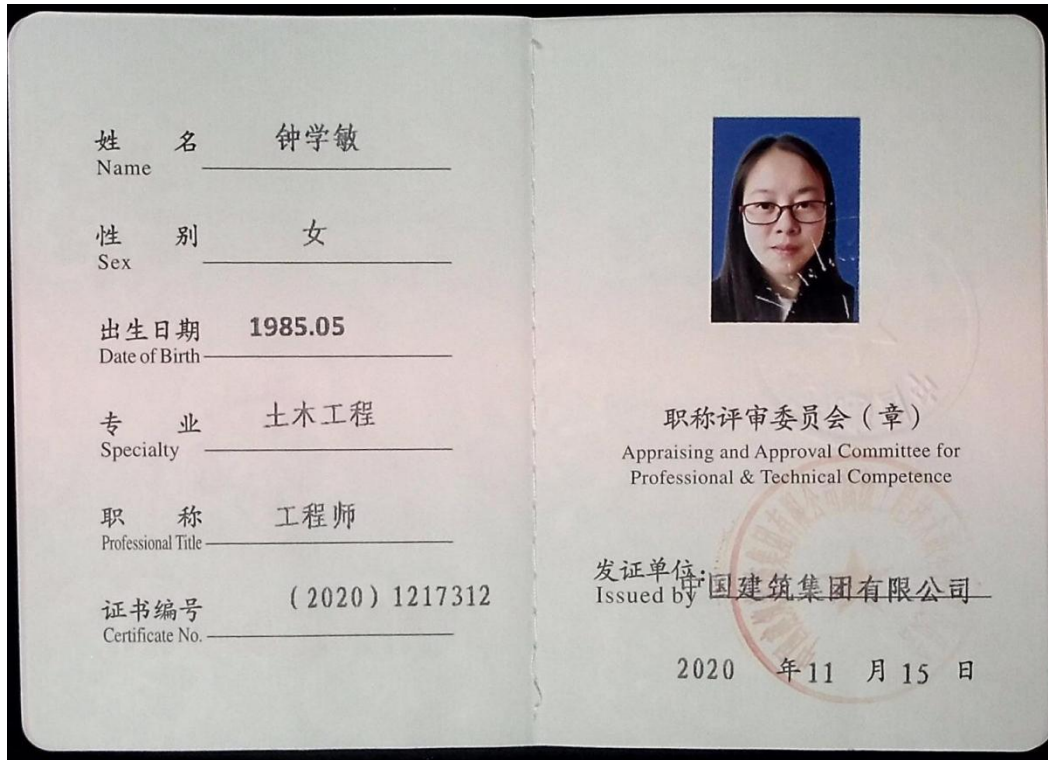 姓名 钟学敏
Name
性别 女
Sex
出生日期 1985.05
Date of Birth
专业 土木工程
Specialty
职称 工程师
Professional Title
证书编号 (2020) 1217312
Certificate No.
职称评审委员会（章）
Appraising and Approval Committee for
Professional & Technical Competence
发证单位：中国建筑集团有限公司
Issued by
2020 年 11 月 15 日